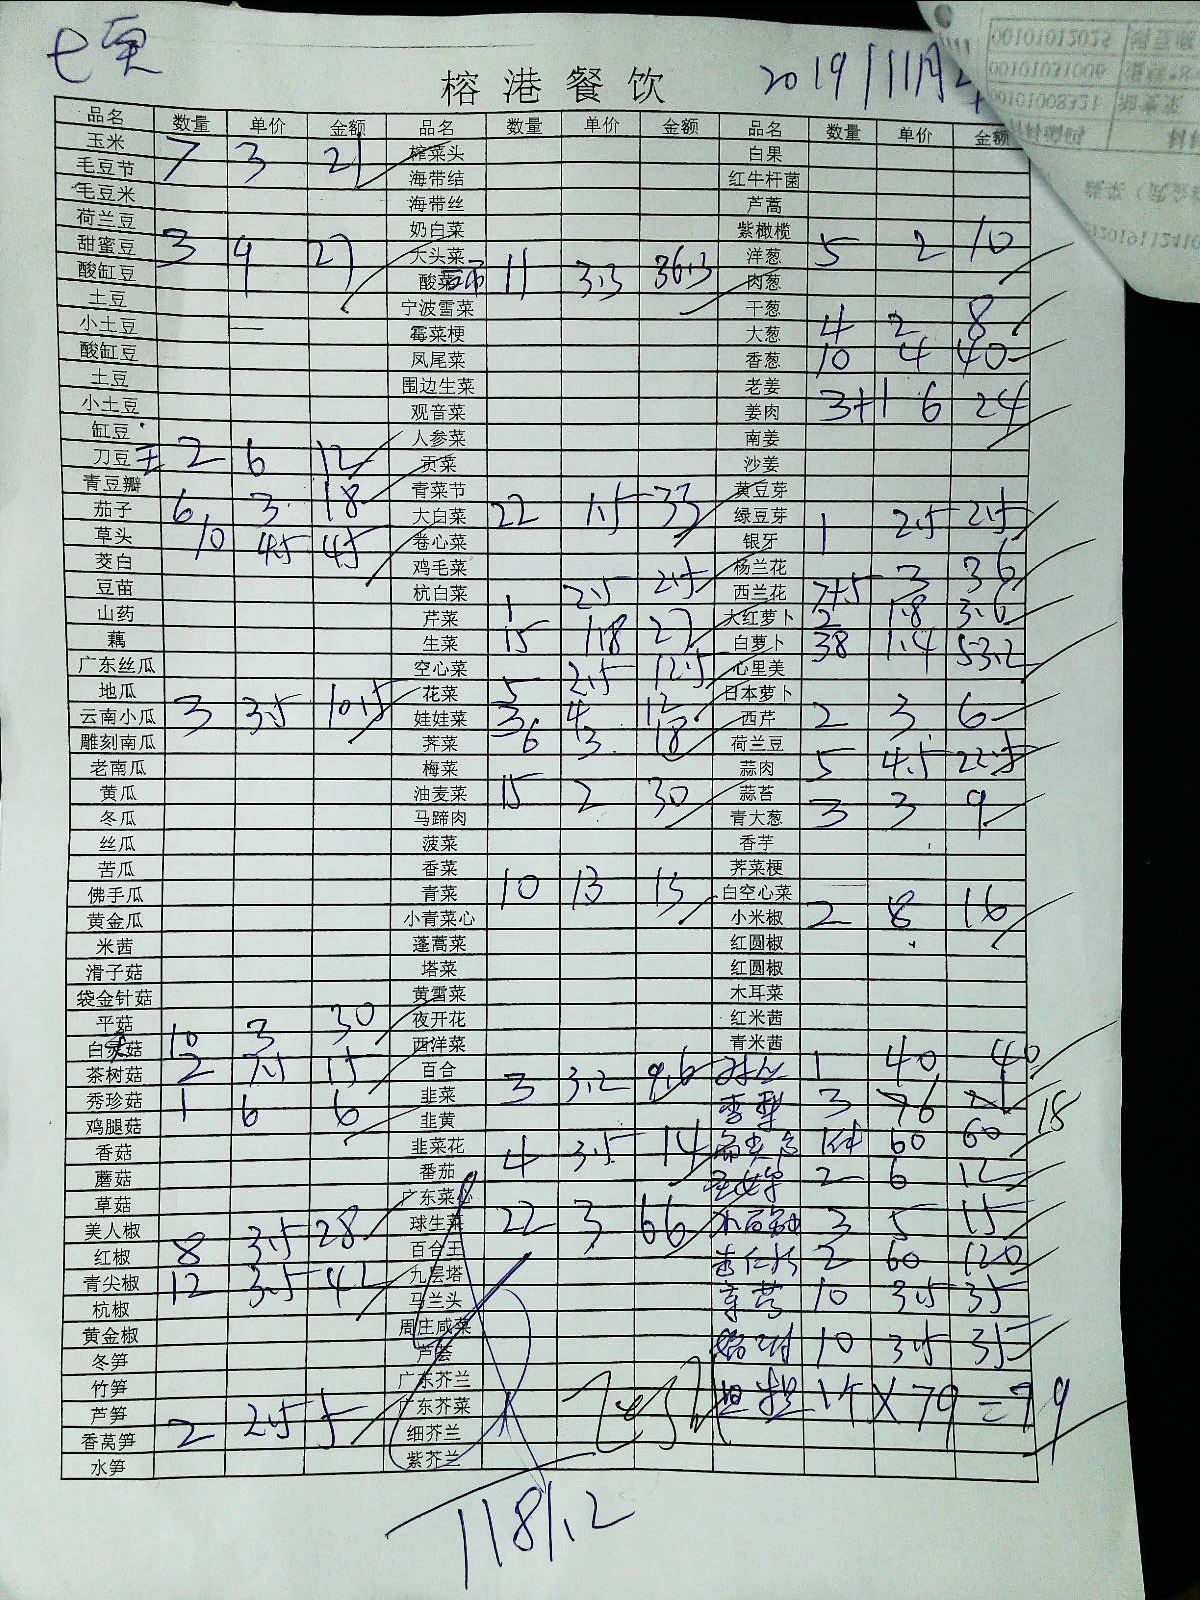 七页
榕港餐饮 2019/11月2
品名 数量 单价 金额 品名 数量 单价 金额 品名 数量 单价 金额
玉米 7 3 21 榨菜头 白果
毛豆节 海带结 红牛杆菌
毛豆米 海带丝 芦蒿
荷兰豆 奶白菜 紫橄榄
甜蜜豆 3 9 27 大头菜 洋葱 5 2 10
酸缸豆 酸菜 11 3.3 36.3 肉葱
土豆 宁波雪菜 干葱
小土豆 霉菜梗 大葱 4 2 8
酸缸豆 凤尾菜 香葱 10 4 40
土豆 围边生菜 老姜
小土豆 观音菜 姜肉 3+1 6 24
缸豆 人参菜 南姜
刀豆 2 6 12 贡菜 沙姜
青豆瓣 青菜节 黄豆芽
茄子 6 3 18 大白菜 22 1.5 33 绿豆芽 1 2.5 2.5
草头 10 4.5 45 卷心菜 银牙
茭白 鸡毛菜 杨兰花
豆苗 杭白菜 1 2.5 2.5 西兰花 7+5 3 36
山药 芹菜 大红萝卜 2 1.8 3.6
藕 生菜 15 1.8 27 白萝卜 38 1.4 53.2
广东丝瓜 空心菜 心里美
地瓜 花菜 5 2.5 12.5 日本萝卜
云南小瓜 3 3.5 10.5 娃娃菜 3 4 12 西芹 2 3 6
雕刻南瓜 荠菜 6 3 18 荷兰豆
老南瓜 梅菜 蒜肉 5 4.5 22.5
黄瓜 油麦菜 15 2 30 蒜苔
冬瓜 马蹄肉 青大葱 3 3 9
丝瓜 菠菜 香芋
苦瓜 香菜 荠菜梗
佛手瓜 青菜 10 1.3 13 白空心菜
黄金瓜 小青菜心 小米椒 2 8 16
米茜 蓬蒿菜 红圆椒
滑子菇 塔菜 红圆椒
袋金针菇 黄雷菜 木耳菜
平菇 夜开花 红米茜
白灵菇 10 3 30 西洋菜 青米茜
茶树菇 2 7.5 15 百合 3 3.2 9.6 1 40 40
秀珍菇 1 6 6 韭菜 3 6 18
鸡腿菇 韭黄
香菇 韭菜花 4 3.5 14 1件 60 60
蘑菇 番茄 2 6 12
草菇 广东菜心
美人椒 球生菜 22 3 66 3 5 15
红椒 8 3.5 28 百合王 2 60 120
青尖椒 12 3.5 42 九层塔
杭椒 马兰头 10 3.5 35
黄金椒 周庄咸菜
冬笋 芦荟 10 3.5 35
竹笋 广东芥兰
芦笋 广东芥菜 1件 X 79 = 79
香莴笋 2 2.5 5 细芥兰
水笋 紫芥兰
1181.2